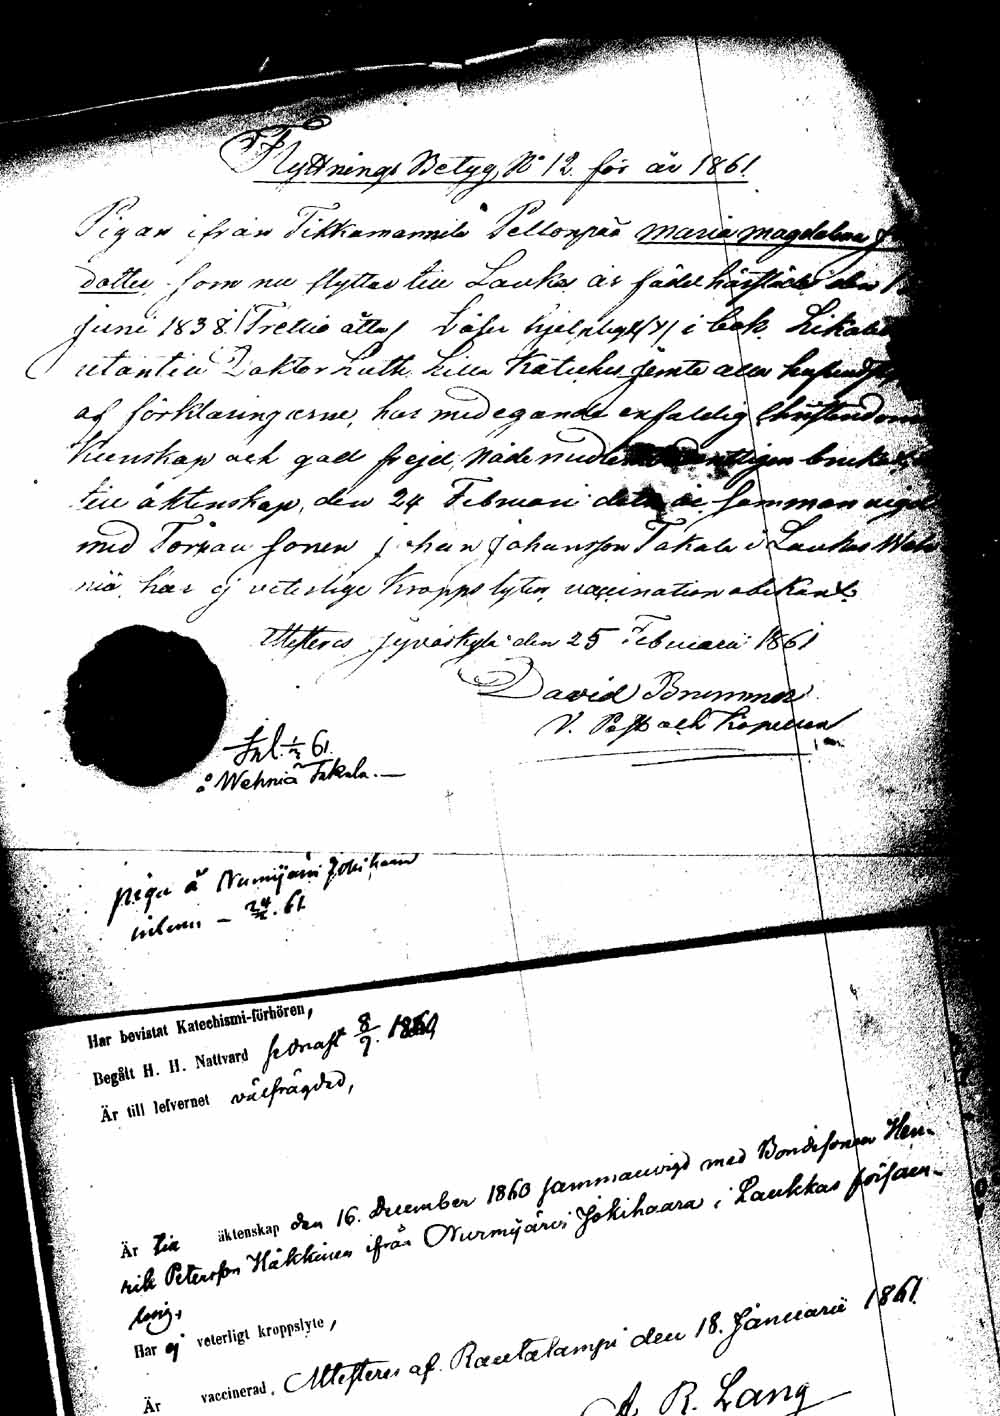 Flyttnings Betyg, No 12. för år 1861
Pigan ifrån Tikkamannila Pellonpää Maria Magdalena
dotter som nu flyttar till Laukas är född härstädes den
Juni 1838. (Trettio åtta) läser hjelpligt i bok
utantill Doktor Luth. Lilla Kateches jemte alla
af förklaringarne, har medegande enfaldig Christendoms
Kunskap och god frejd, Nådemedlen
till äktenskap, den 24 Februari detta år sammanvigd
med Torpare sonen Johan Johansson Takala i Laukas Weh
niä, har ej veterlige kropps lyten, vaccination obekant.
Attesteras Jyväskylä den 25 Februarii 1861
David Brummer
V. Past och Kapellan
Inl. 1/3 61.
å Wehniä Takala.
piga å Nurmijärvi Jokihaara
inlemn – 24/2. 61.
Har bevistat Katechismi-förhören,
Begått H. H. Nattvard sednast 8/7. 1860,
Är till lefvernet välfrägdad,
Är till äktenskap den 16. December 1860 sammanvigd med Bondesonen Hen-
rik Petersson Häkkinen ifrån Nurmijärvi Jokihaara i Laukkas försam-
ling,
Har ej veterligt kroppslyte,
Är vaccinerad. Attesteras af Rautalampi den 18. Januarii 1861.
A. R. Lang